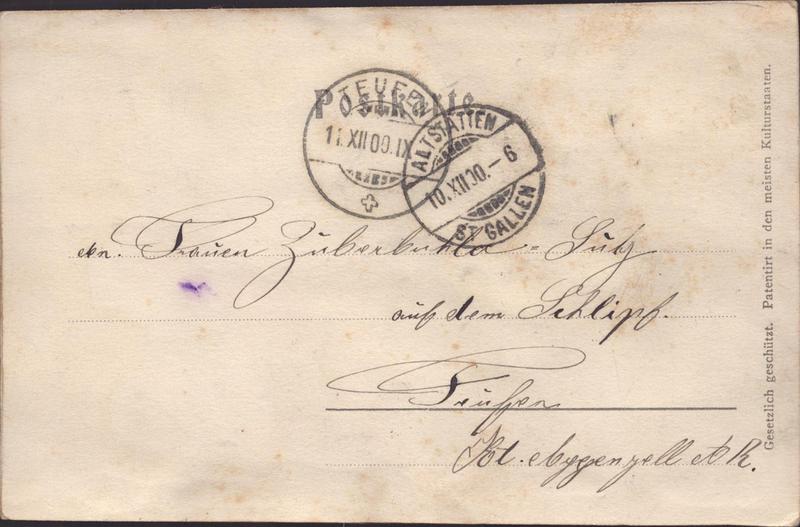 Postkarte
TEUFEN
11.XII.00.IX
ALTSTÄTTEN
10.XII.00.-6
ST GALLEN
Frauen Zuberbühler=Sutz
auf dem Schlipf.
Teufen
Kt. Appenzell A R.
Gesetzlich geschützt. Patentirt in den meisten Kulturstaaten.